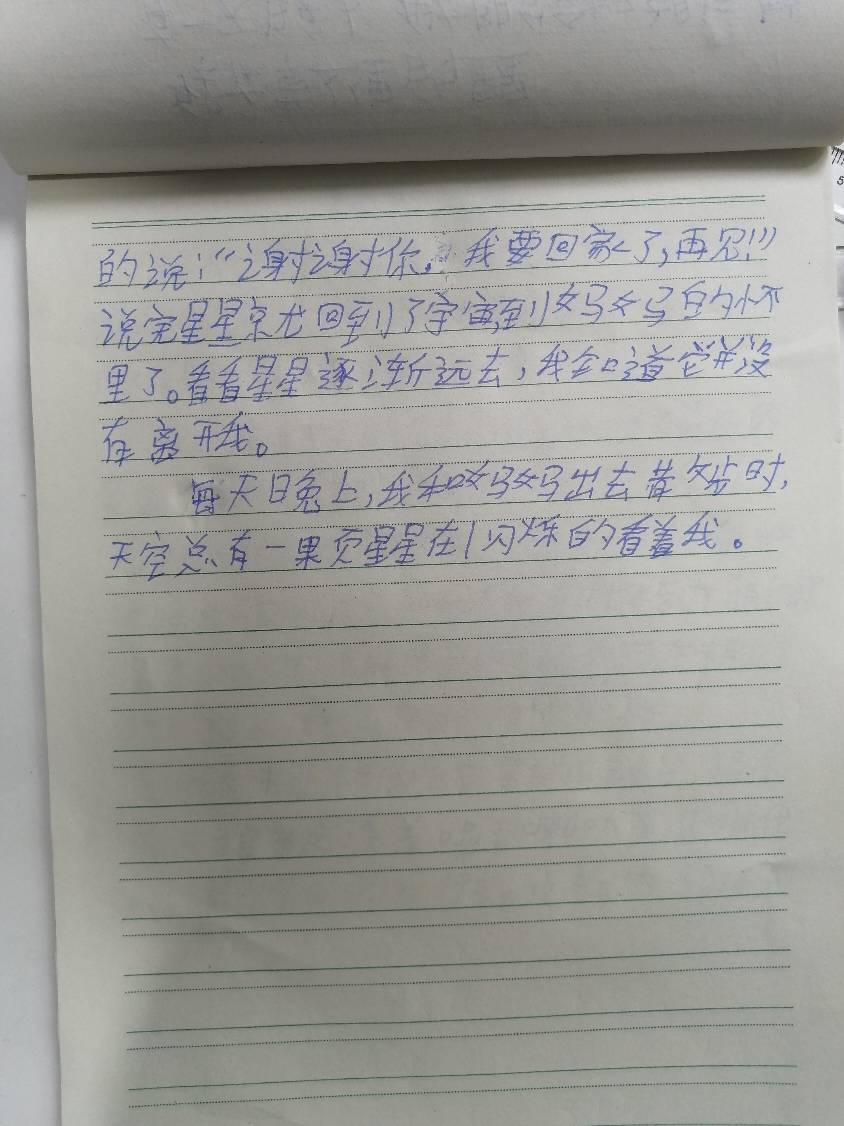 的说:“谢谢你,我要回家了,再见!”
说完星星就回到了宇宙,到妈妈的怀
里了。看看星星逐渐远去,我知道它并没
有离开我。
每天晚上,我和妈妈出去散步时,
天空总有一颗星星在闪烁的看着我。